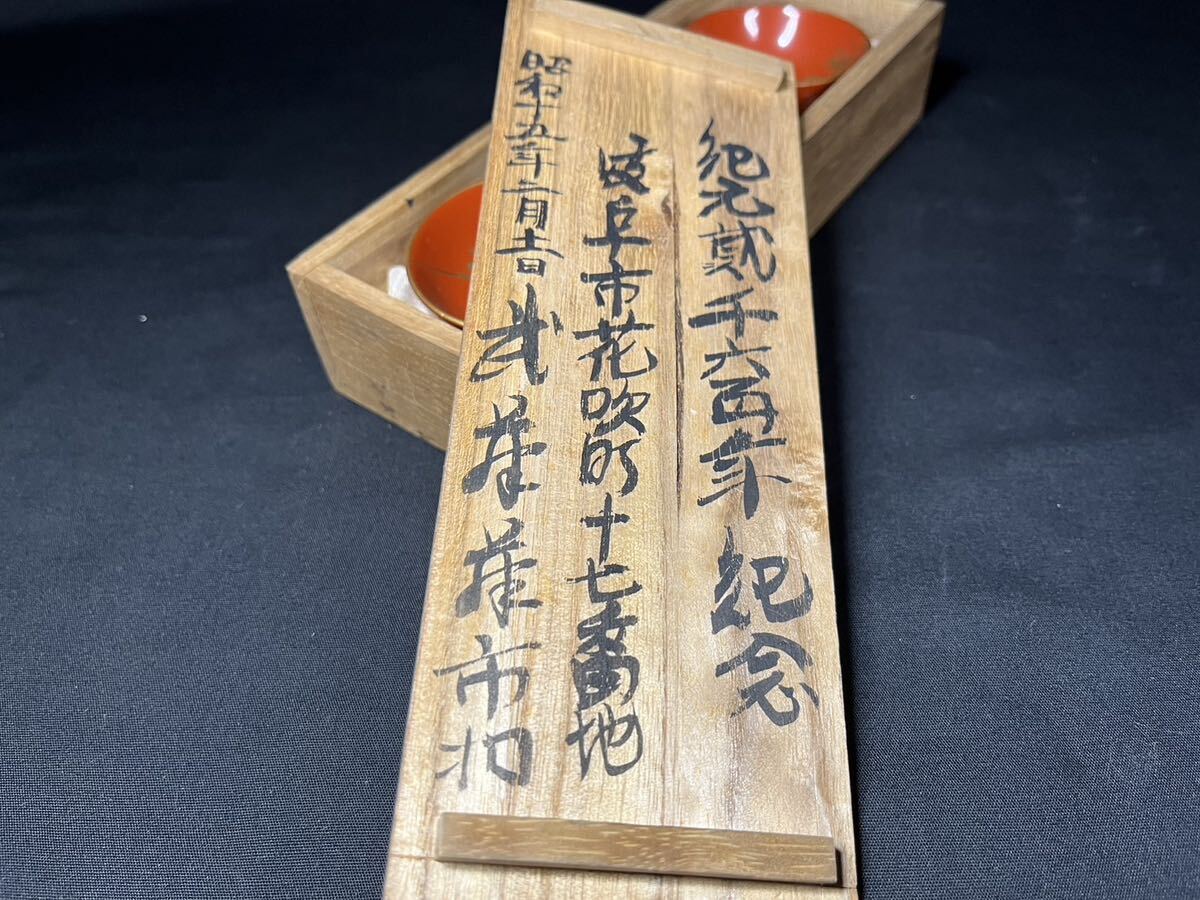 紀元貳千六百年 紀念
岐阜市花吹町十七番地
昭和十五年二月十一日 武藤藤市